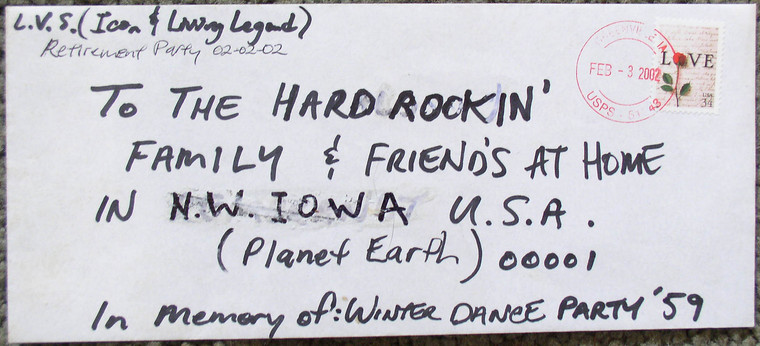 L.V.S. (Icon & Living Legend)
Retirement Party 02-02-02
LOVE
USA
34
FEB - 3 2002
USPS
TO THE HARD ROCKIN'
FAMILY & FRIENDS AT HOME
IN N.W. IOWA U.S.A.
(Planet Earth) 00001
In memory of: WINTER DANCE PARTY '59